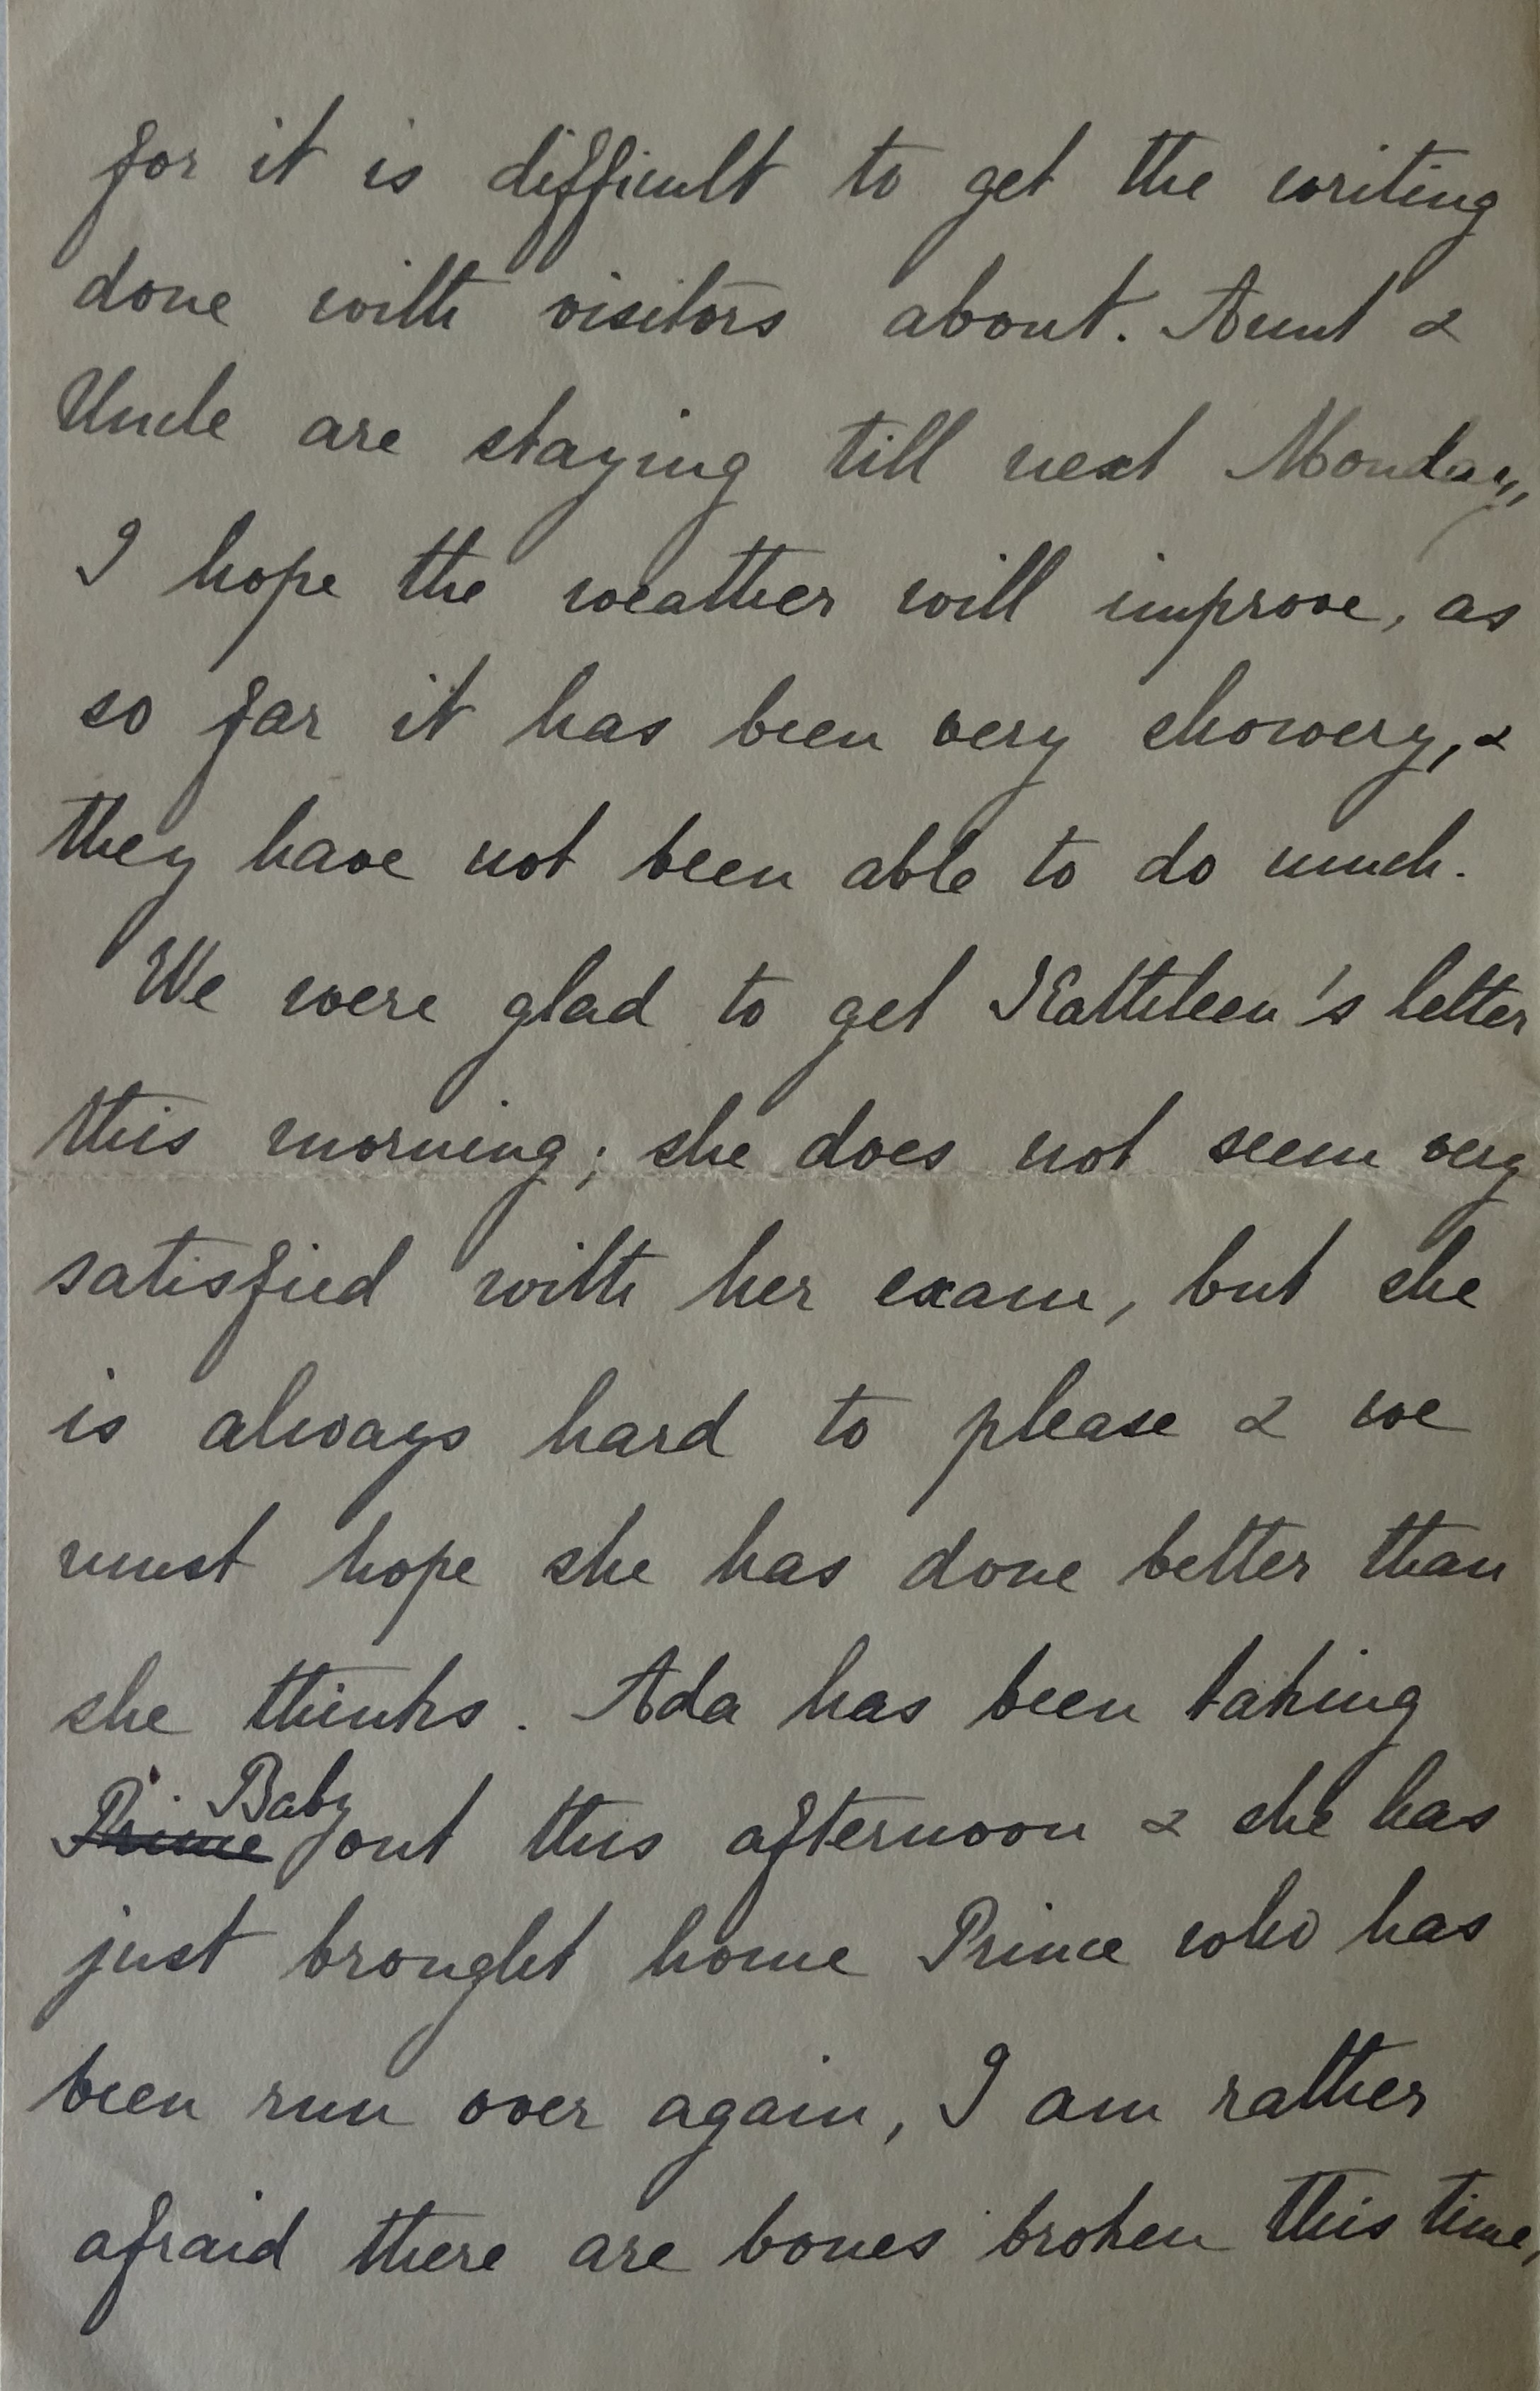 for it is difficult to get the writing
done with visitors about. Aunt &
Uncle are staying till next Monday,
I hope the weather will improve, as
so far it has been very showery, &
they have not been able to do much.
We were glad to get Kathleen's letter
this morning; she does not seem very
satisfied with her exam, but she
is always hard to please & we
must hope she has done better than
she thinks. Ada has been taking
Baby
Prince out this afternoon & she has
just brought home Prince who has
been run over again, I am rather
afraid there are bones broken this time,